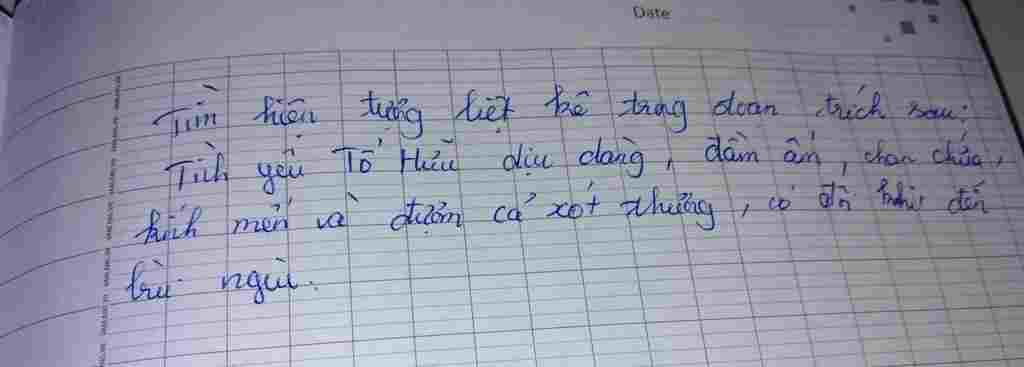 Date
Tìm hiện tượng liệt kê trong đoan trích sau:
Tình yêu Tố Hữu dịu dàng, đầm ấm, chan chứa,
kính mến và đượm cả xót thương, có đôi khi đến
bùi ngùi.